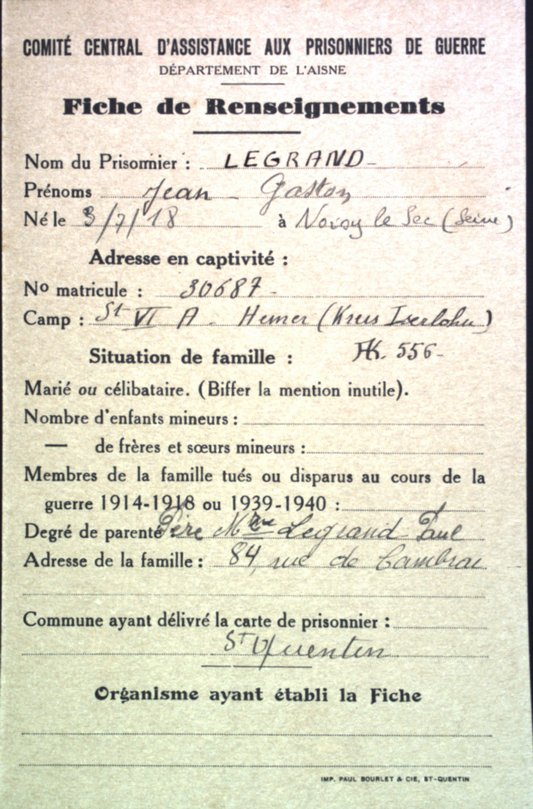 COMITÉ CENTRAL D'ASSISTANCE AUX PRISONNIERS DE GUERRE
DÉPARTEMENT DE L'AISNE
Fiche de Renseignements
Nom du Prisonnier : LEGRAND
Prénoms Jean Gaston
Né le 3/7/18 à Noisy le Sec (Seine)
Adresse en captivité :
No matricule : 30687
Camp : St VI A. Hemer (Kreis Iserlohn)
Situation de famille : AK. 556
Marié ou célibataire. (Biffer la mention inutile).
Nombre d'enfants mineurs :
— de frères et sœurs mineurs :
Membres de la famille tués ou disparus au cours de la
guerre 1914-1918 ou 1939-1940 :
Degré de parenté Père Legrand Paul
Adresse de la famille : 84, rue de Cambrai
Commune ayant délivré la carte de prisonnier :
St Quentin
Organisme ayant établi la Fiche
IMP. PAUL BOURLET & CIE, ST-QUENTIN